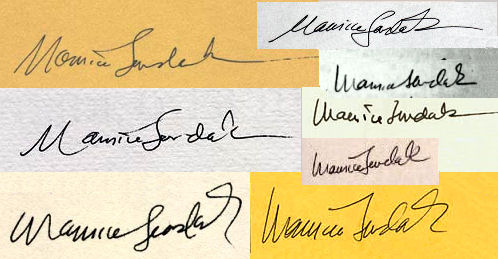 Maurice Sendak
Maurice Sendak
Maurice Sendak
Maurice Sendak
Maurice Sendak
Maurice Sendak
Maurice Sendak
Maurice Sendak